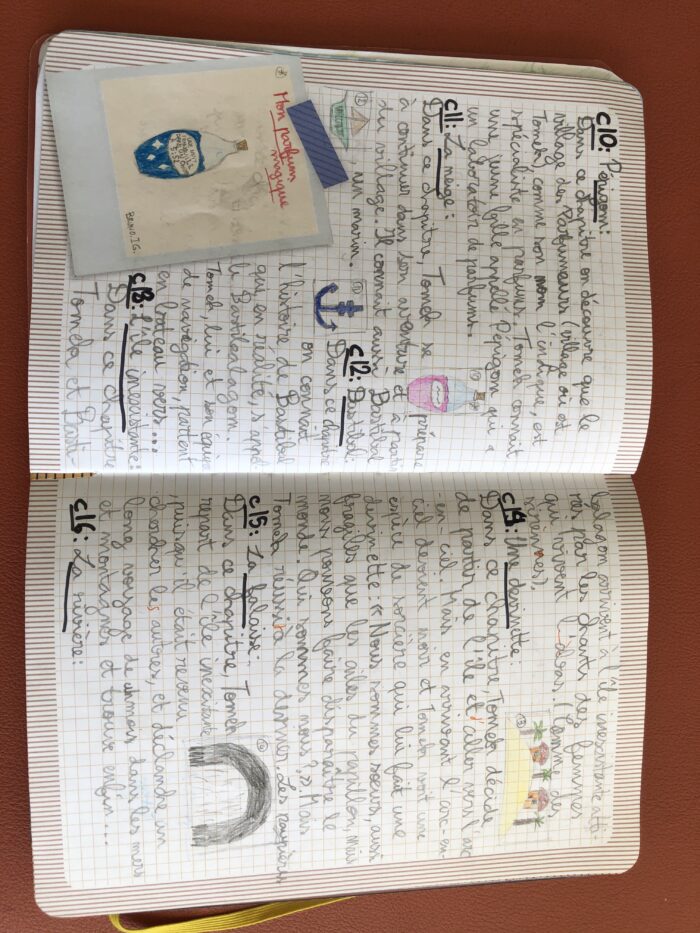 c/10: Pépigom:
Dans ce chapitre on découvre que le
village des Parfumeurs (village où est
Tomek) comme son nom l'indique, est
spécialiste en parfums. Tomek connaît
une jeune fille appellé Pépigom qui a
un laboratoir de parfums.
c/11: La neige:
Dans ce chapitre, Tomek se prépare
à continuer dans son aventure et à partir
du village. Il connait aussi Bastibal
un marin.
c/12: Bastibal:
Dans ce chapitre
on connait
l'histoire de Bastibal
qui, en réalité, s'appel
le Bastibalagom.
Tomek, lui et son équi
de navigation, partent
en bateau vers...
c/13: L'île inexistante:
Dans ce chapitre
Tomek et Basti-
Mon parfum
magique
BRUNO.I.G.
balagom arrivent à l'île inexistante atti-
rés par les chants des femmes
qui vivent là bas. ( des
sirènnes).
c/14: Une devinette:
Dans ce chapitre, Tomek décide
de partir de l'île et aller vers l'arc
-en-ciel. Mais en arrivant l'arc-en-
ciel devient noir et Tomek voit une
espèce de sorcière qui lui fait une
devinette: « Nous sommes sœurs, aussi
fragiles que les ailes du papillon, mais
nous pouvons faire disparaître le
monde. Qui sommes nous ? » Mais
Tomek réussi à la deviner. Les paupières
c/15: La falaise:
Dans ce chapitre, Tomek
repart de l'île inexistante
puisqu'il était revenu
chercher les autres, et déclanche un
long voyage de un mois dans les mers
et montagnes et trouve enfin...
c/16: La rivière: